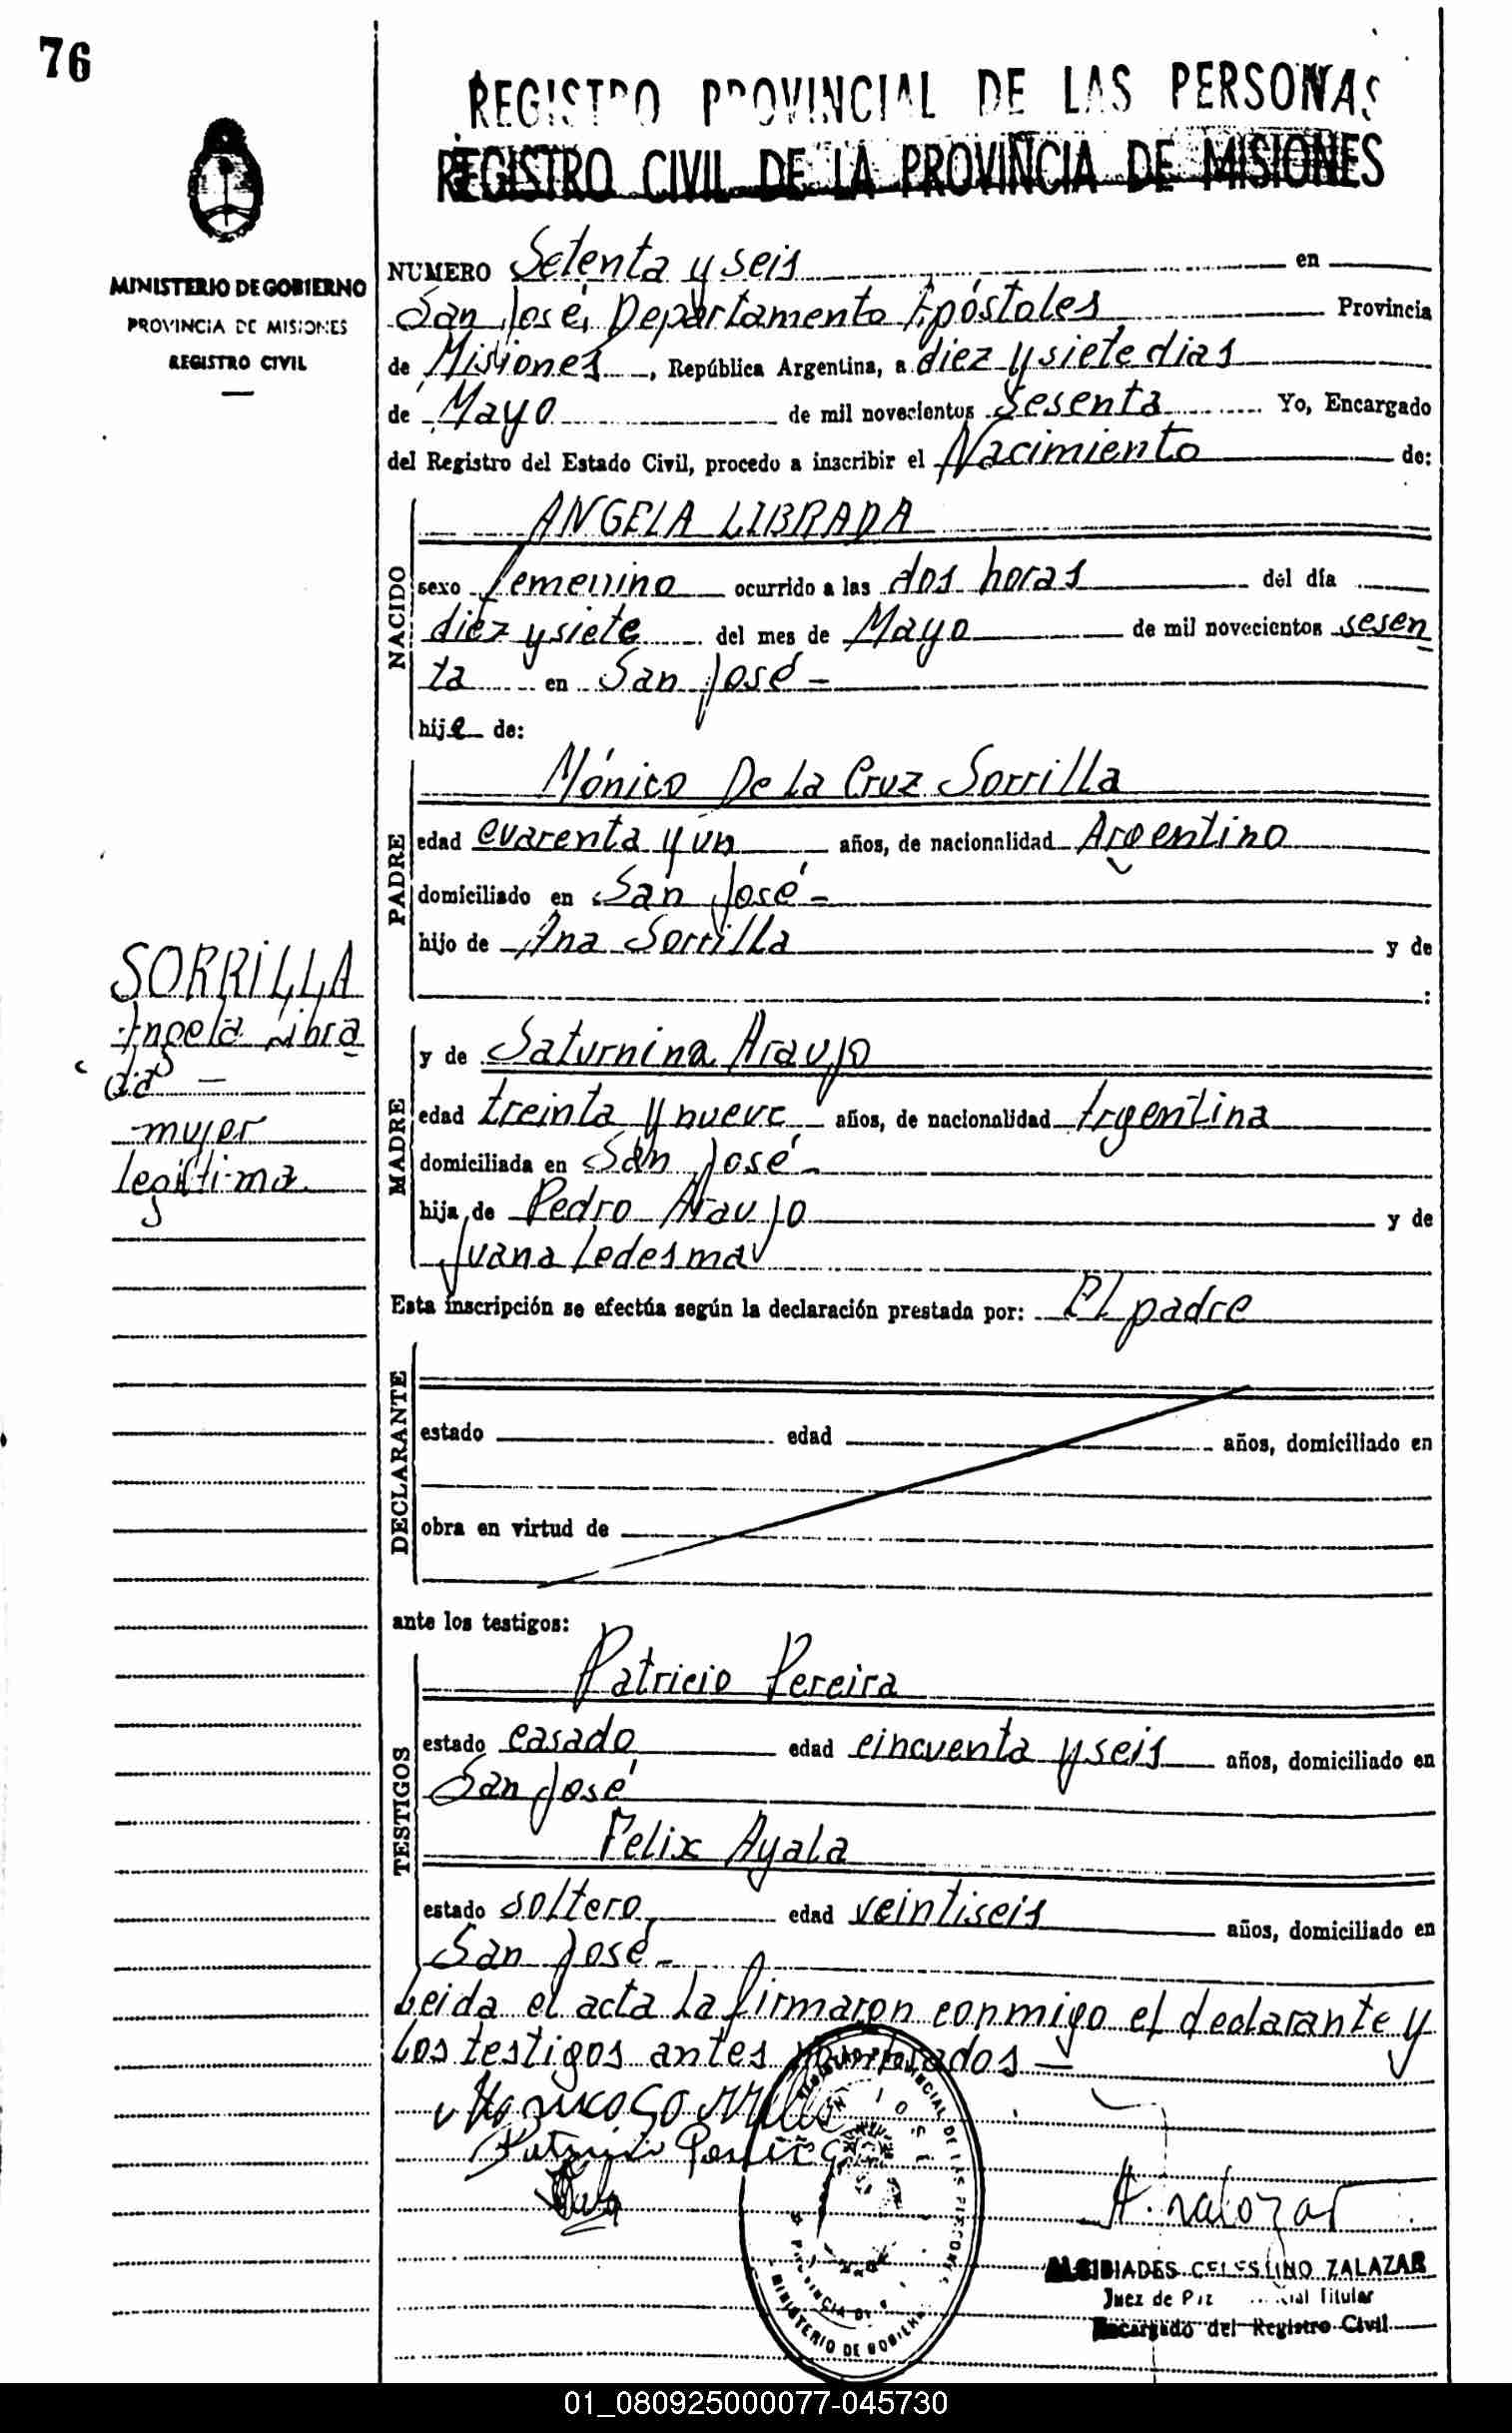 76
REGISTRO PROVINCIAL DE LAS PERSONAS
REGISTRO CIVIL DE LA PROVINCIA DE MISIONES
MINISTERIO DE GOBIERNO
PROVINCIA DE MISIONES
REGISTRO CIVIL
NUMERO Setenta y seis en
San José, Departamento Apóstoles Provincia
de Misiones, República Argentina, a diez y siete dias
de Mayo de mil novecientos Sesenta Yo, Encargado
del Registro del Estado Civil, procedo a inscribir el Nacimiento de:
NACIDO
ANGELA LIBRADA
sexo femenino ocurrido a las dos horas del día
diez y siete del mes de Mayo de mil novecientos sesen
ta en San José -
hije de:
PADRE
Mónico De La Cruz Sorrilla
edad cuarenta y un años, de nacionalidad Argentino
domiciliado en San José -
hijo de Ana Sorrilla y de
:
SORRILLA
Angela Libra
da -
mujer
legítima.
MADRE
y de Saturnina Araujo
edad treinta y nueve años, de nacionalidad Argentina
domiciliada en San José -
hija de Pedro Araujo y de
Juana Ledesma
Esta inscripción se efectúa según la declaración prestada por: El padre
DECLARANTE
estado edad años, domiciliado en
obra en virtud de
ante los testigos:
TESTIGOS
Patricio Pereira
estado casado edad cincuenta y seis años, domiciliado en
San José
Felix Ayala
estado soltero edad veintiseis años, domiciliado en
San José -
Leida el acta la firmaron conmigo el declarante y
los testigos antes nombrados -
Monico Sorrilla
Patricio Pereira
A. Zalazar
ALCIBIADES CELESTINO ZALAZAR
Juez de Paz Titular
Encargado del Registro Civil
MINISTERIO DE GOBIERNO
01_080925000077-045730